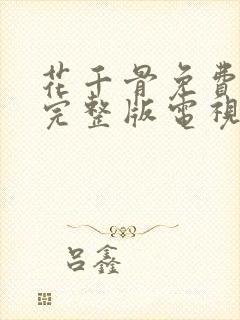 花千骨免費
完整版電視
吕鑫